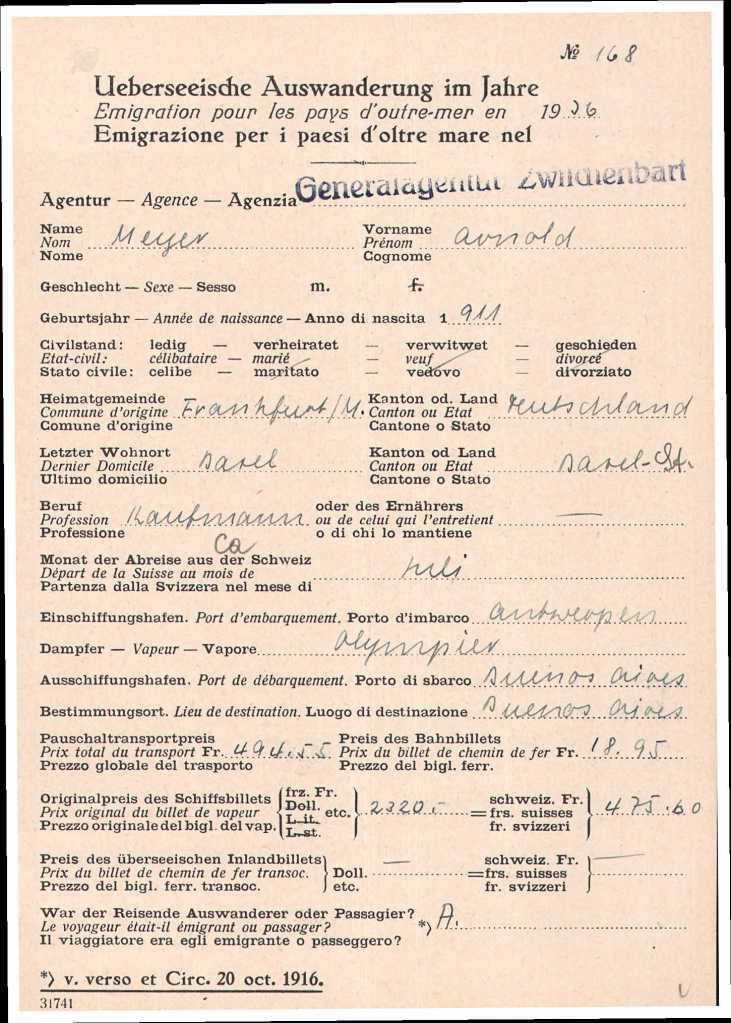 № 168
Ueberseeische Auswanderung im Jahre
Emigration pour les pays d'outre-mer en 1936
Emigrazione per i paesi d'oltre mare nel
Agentur — Agence — Agenzia Generalagentur Zwilchenbart
Name
Nom Meyer
Nome
Vorname
Prénom Arnold
Cognome
Geschlecht — Sexe — Sesso m. f.
Geburtsjahr — Année de naissance — Anno di nascita 1911
Civilstand: ledig — verheiratet — verwitwet — geschieden
Etat-civil: célibataire — marié — veuf — divorcé
Stato civile: celibe — maritato — vedovo — divorziato
Heimatgemeinde
Commune d'origine Frankfurt/M.
Comune d'origine
Kanton od. Land
Canton ou Etat Deutschland
Cantone o Stato
Letzter Wohnort
Dernier Domicile Basel
Ultimo domicilio
Kanton od Land
Canton ou Etat Basel-St.
Cantone o Stato
Beruf
Profession Kaufmann
Professione
oder des Ernährers
ou de celui qui l'entretient —
o di chi lo mantiene
Ca
Monat der Abreise aus der Schweiz
Départ de la Suisse au mois de Juli
Partenza dalla Svizzera nel mese di
Einschiffungshafen. Port d'embarquement. Porto d'imbarco Antwerpen
Dampfer — Vapeur — Vapore Olympier
Ausschiffungshafen. Port de débarquement. Porto di sbarco Buenos Aires
Bestimmungsort. Lieu de destination. Luogo di destinazione Buenos Aires
Pauschaltransportpreis
Prix total du transport Fr. 494.55
Prezzo globale del trasporto
Preis des Bahnbillets
Prix du billet de chemin de fer Fr. 18.95
Prezzo del bigl. ferr.
Originalpreis des Schiffsbillets
Prix original du billet de vapeur
Prezzo originale del bigl. del vap.
frz. Fr.
Doll.
L. it.
L. st.
etc. 2320.-
schweiz. Fr.
= frs. suisses 475.60
fr. svizzeri
Preis des überseeischen Inlandbillets
Prix du billet de chemin de fer transoc.
Prezzo del bigl. ferr. transoc.
—
Doll.
etc.
schweiz. Fr. —
= frs. suisses
fr. svizzeri
War der Reisende Auswanderer oder Passagier?
Le voyageur était-il émigrant ou passager? *) A.
Il viaggiatore era egli emigrante o passeggero?
*) v. verso et Circ. 20 oct. 1916.
31741